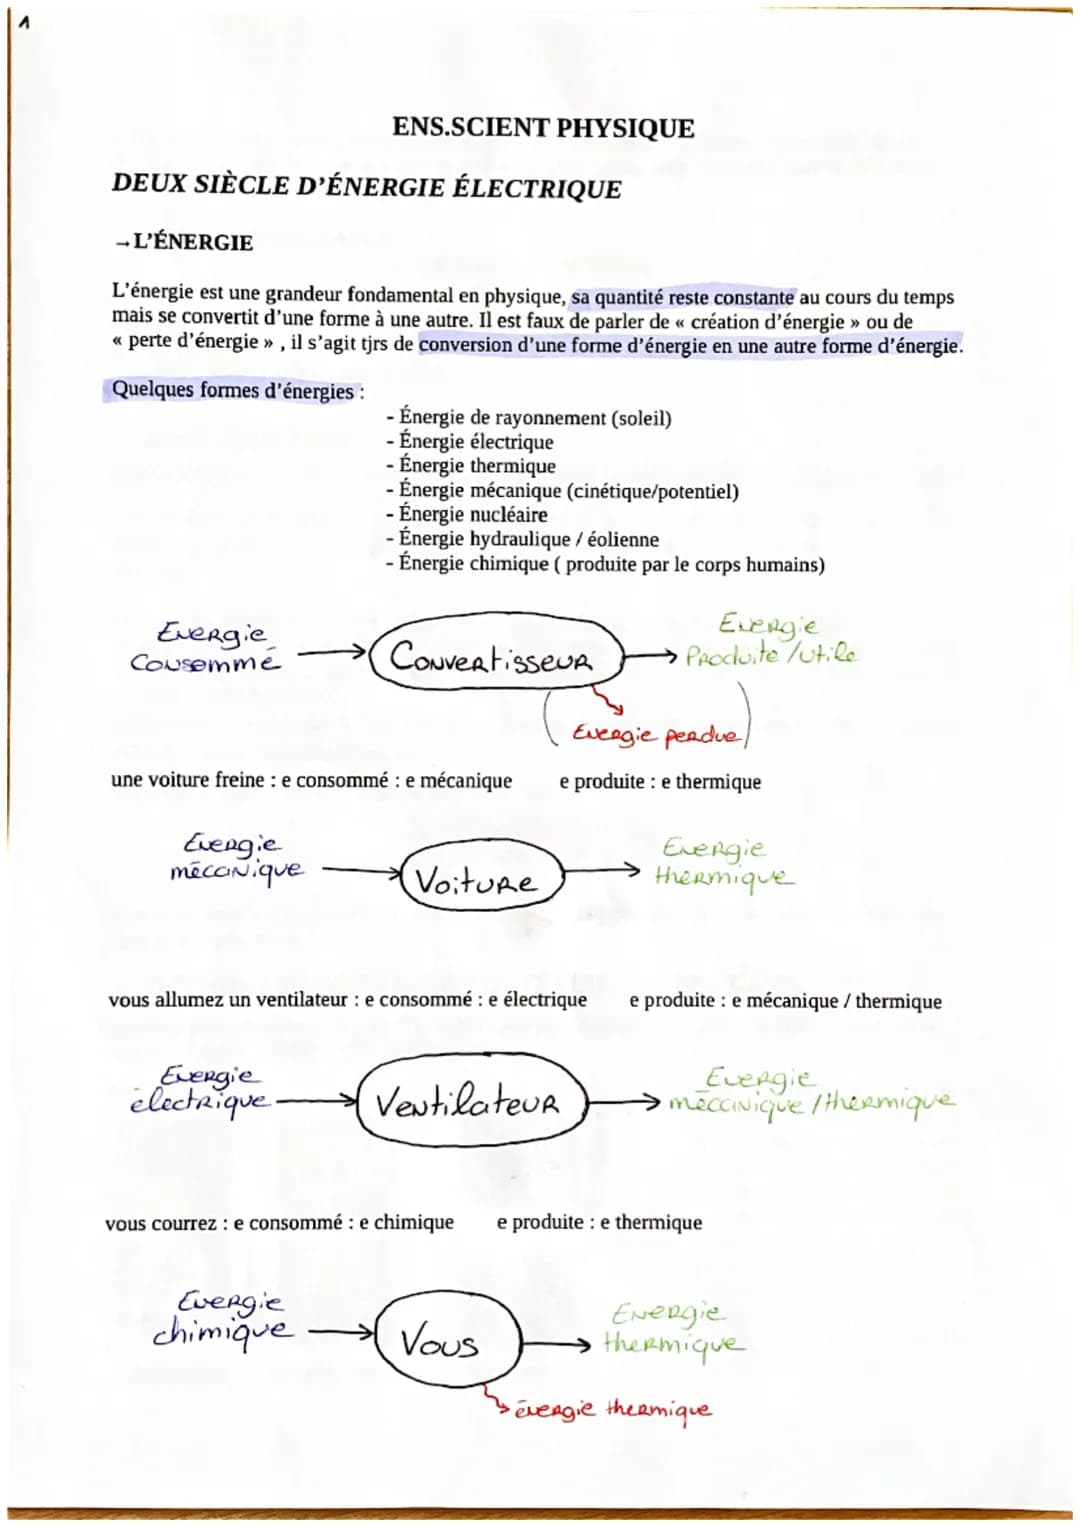 1
ENS.SCIENT PHYSIQUE
DEUX SIÈCLE D'ÉNERGIE ÉLECTRIQUE
→ L'ÉNERGIE
L'énergie est une grandeur fondamental en physique, sa quantité reste constante au cours du temps
mais se convertit d'une forme à une autre. Il est faux de parler de « création d'énergie » ou de
« perte d'énergie » , il s'agit tjrs de conversion d'une forme d'énergie en une autre forme d'énergie.
Quelques formes d'énergies :
- Énergie de rayonnement (soleil)
- Énergie électrique
- Énergie thermique
- Énergie mécanique (cinétique/potentiel)
- Énergie nucléaire
- Énergie hydraulique / éolienne
- Énergie chimique ( produite par le corps humains)
Énergie
Consommé
Convertisseur
Énergie
Produite / utile
(Énergie perdue)
une voiture freine : e consommé : e mécanique e produite : e thermique
Énergie
mécanique
Voiture
Énergie
thermique
vous allumez un ventilateur : e consommé : e électrique e produite : e mécanique / thermique
Énergie
électrique
Ventilateur
Énergie
mécanique / thermique
vous courrez : e consommé : e chimique e produite : e thermique
Énergie
chimique
Vous
Énergie
thermique
énergie thermique